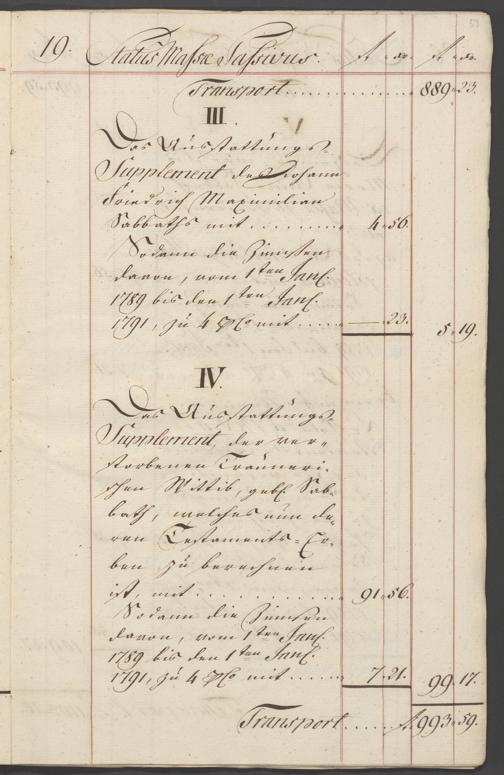 19. Status Massæ Passivus. fl. xr. fl. xr.
Transport . . . . . . . . . . . 889. 23.
III.
Das Ausstattungs-
Supplement des Johann
Friedrich Maximilian
Sabbaths mit . . . . . . . . 4. 56.
Sodann die Zinnßen
davon, vom 1ten Jan.
1789 bis den 1ten Jan.
1791, zu 4 pCto mit . . . . . —— 23. 5. 19.
IV.
Das Ausstattungs-
Supplement der ver-
storbenen Träuneri-
schen Wittib, geb. Sab-
bath, welches nun de-
ren Testaments-Er-
ben zu berechnen
ist, mit . . . . . . . . . . 91. 56.
Sodann die Zinnsen
davon, vom 1ten Jan.
1789 bis den 1ten Jan.
1791, zu 4 pCto mit . . . . . 7. 21. 99. 17.
Transport . . . . . fl. 993. 59.